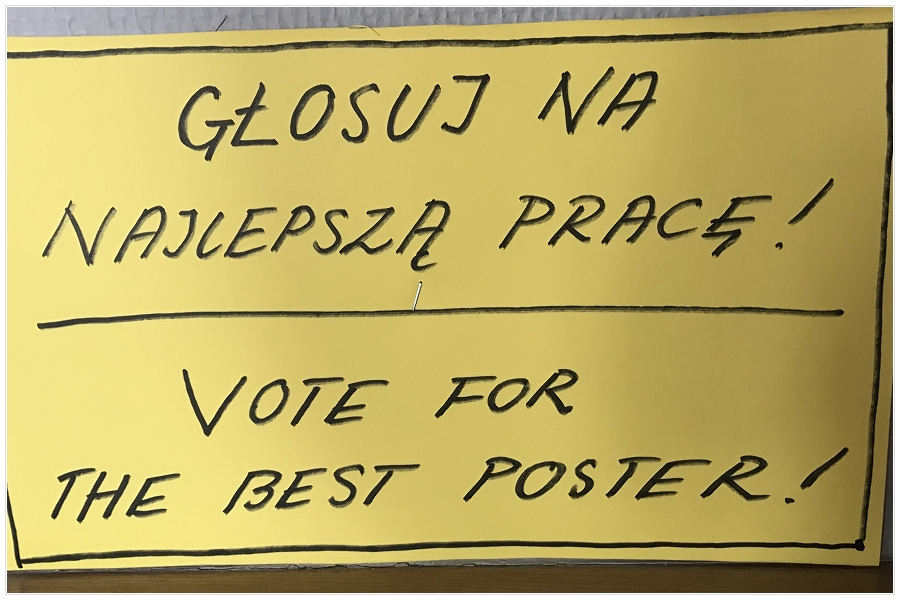 GŁOSUJ NA
NAJLEPSZĄ PRACĘ!
VOTE FOR
THE BEST POSTER!